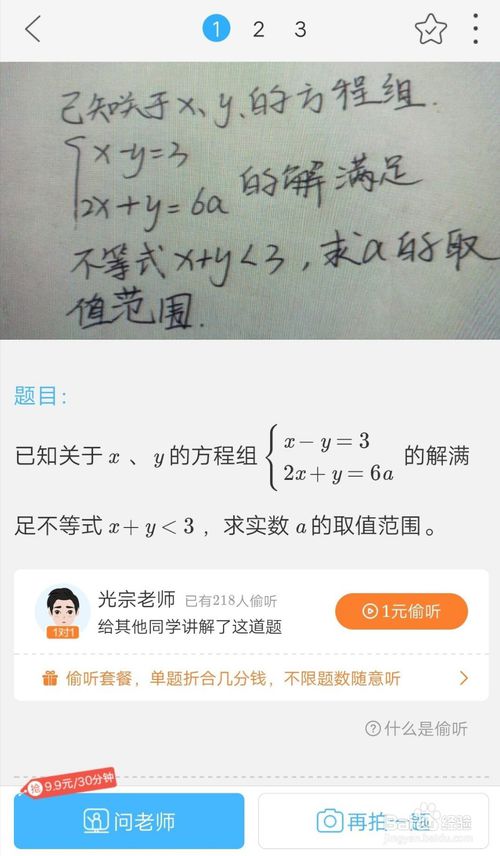 1 2 3
已知关于x、y、的方程组.
x-y=3
2x+y=6a 的解满足
不等式x+y<3,求a的取
值范围.
题目:
已知关于 x 、 y 的方程组 { x − y = 3
2x + y = 6a 的解满
足不等式 x + y < 3 ,求实数 a 的取值范围。
光宗老师 已有218人偷听
1元偷听
1对1
给其他同学讲解了这道题
偷听套餐,单题折合几分钱,不限题数随意听
?什么是偷听
抢 9.9元/30分钟
问老师
再拍一题
Baidu经验
jingyan.baidu.com